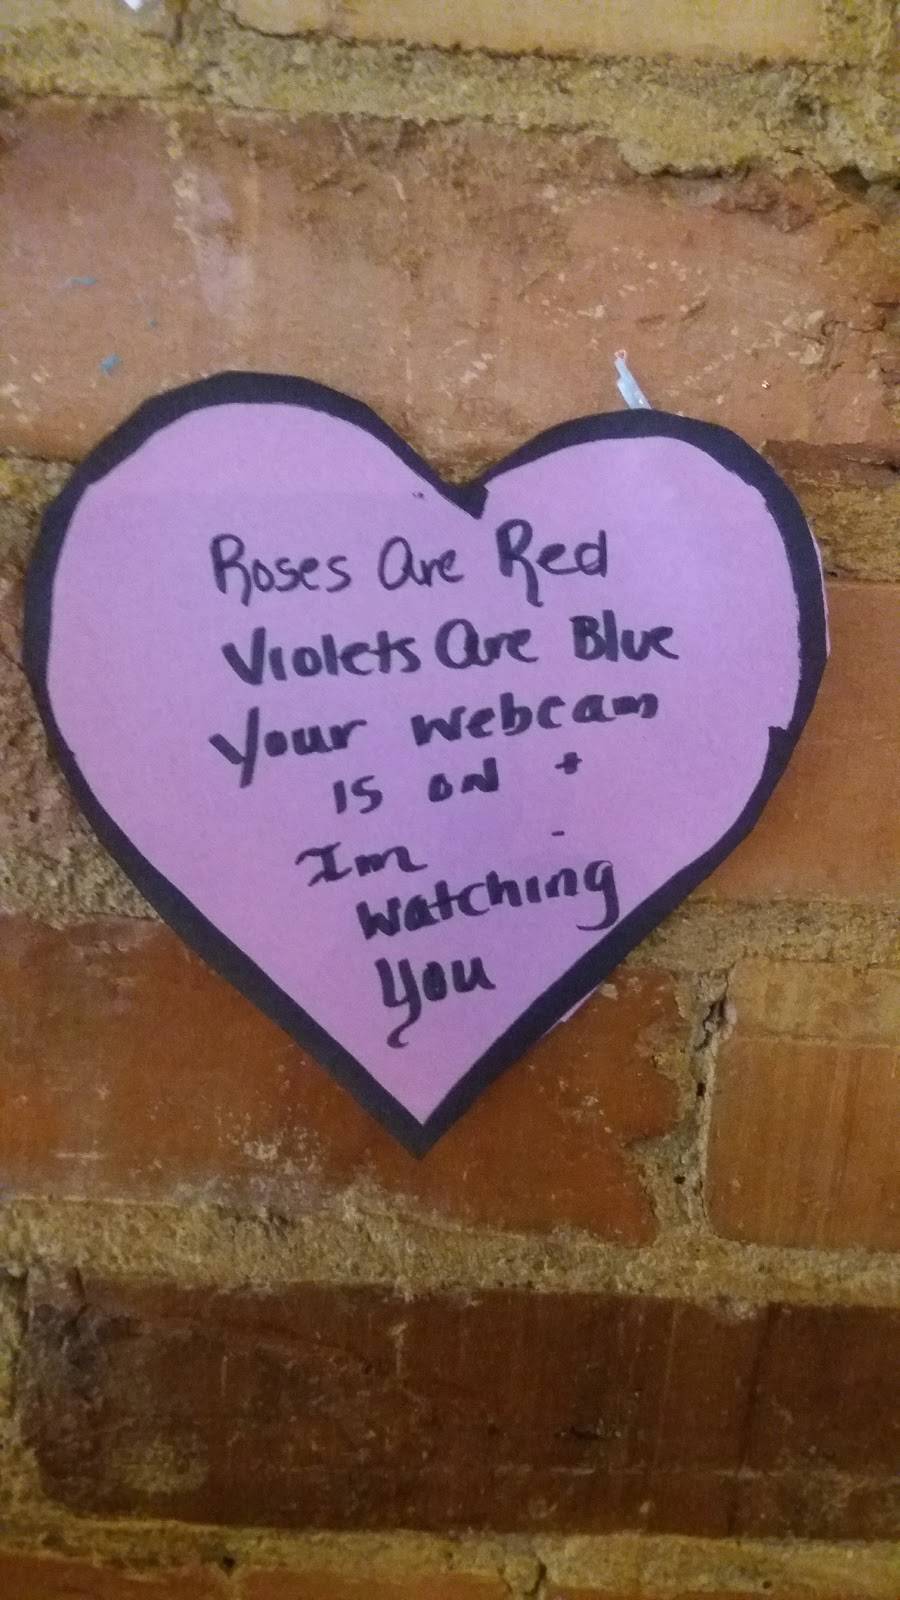 Roses Are Red
Violets Are Blue
Your webcam
is on +
Im
watching
you